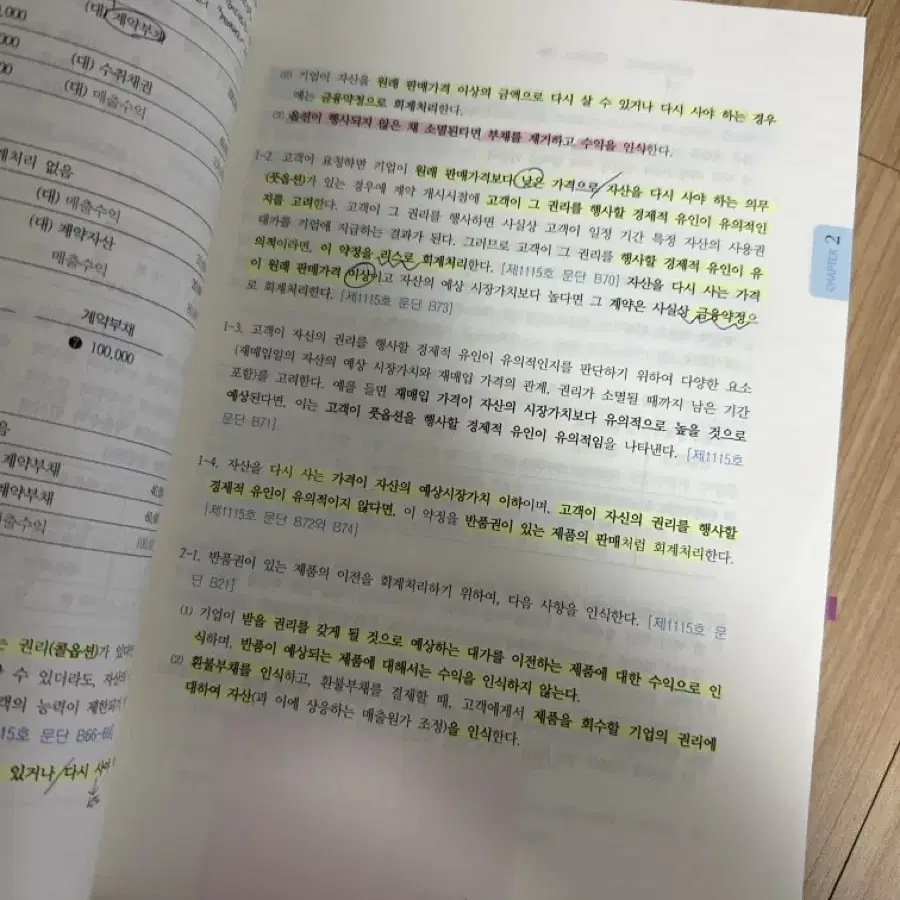 (대) 계약부채
(대) 수취채권
(대) 매출수익
회계처리 없음
(대) 매출수익
(대) 계약자산
매출수익
계약부채
❼ 100,000
계약부채
계약부채
매출수익
는 권리(콜옵션)가 있다면
수 있더라도, 자산의
객의 능력이 제한되기
115호 문단 B66-68]
있거나/다시 사야
(2) 기업이 자산을 원래 판매가격 이상의 금액으로 다시 살 수 있거나 다시 사야 하는 경우
에는 금융약정으로 회계처리한다.
(3) 옵션이 행사되지 않은 채 소멸된다면 부채를 제거하고 수익을 인식한다.
1-2. 고객이 요청하면 기업이 원래 판매가격보다 낮은 가격으로 자산을 다시 사야 하는 의무
(풋옵션)가 있는 경우에 계약 개시시점에 고객이 그 권리를 행사할 경제적 유인이 유의적인
지를 고려한다. 고객이 그 권리를 행사하면 사실상 고객이 일정 기간 특정 자산의 사용권
대가를 기업에 지급하는 결과가 된다. 그러므로 고객이 그 권리를 행사할 경제적 유인이 유
의적이라면, 이 약정을 리스로 회계처리한다. [제1115호 문단 B70] 자산을 다시 사는 가격
이 원래 판매가격 이상이고 자산의 예상 시장가치보다 높다면 그 계약은 사실상 금융약정으
로 회계처리한다. [제1115호 문단 B73]
1-3. 고객이 자신의 권리를 행사할 경제적 유인이 유의적인지를 판단하기 위하여 다양한 요소
(재매입일의 자산의 예상 시장가치와 재매입 가격의 관계, 권리가 소멸될 때까지 남은 기간
포함)를 고려한다. 예를 들면 재매입 가격이 자산의 시장가치보다 유의적으로 높을 것으로
예상된다면, 이는 고객이 풋옵션을 행사할 경제적 유인이 유의적임을 나타낸다. [제1115호
문단 B71]
1-4. 자산을 다시 사는 가격이 자산의 예상시장가치 이하이며, 고객이 자신의 권리를 행사할
경제적 유인이 유의적이지 않다면, 이 약정을 반품권이 있는 제품의 판매처럼 회계처리한다.
[제1115호 문단 B72와 B74]
2-1. 반품권이 있는 제품의 이전을 회계처리하기 위하여, 다음 사항을 인식한다. [제1115호 문
단 B21]
(1) 기업이 받을 권리를 갖게 될 것으로 예상하는 대가를 이전하는 제품에 대한 수익으로 인
식하며, 반품이 예상되는 제품에 대해서는 수익을 인식하지 않는다.
(2) 환불부채를 인식하고, 환불부채를 결제할 때, 고객에게서 제품을 회수할 기업의 권리에
대하여 자산(과 이에 상응하는 매출원가 조정)을 인식한다.
CHAPTER 2